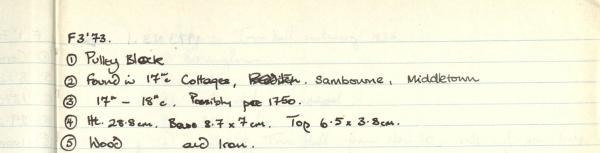 F3'73.
① Pulley Block
② Found in 17"c Cottages, Sambourne, Middletown
③ 17" - 18"c. Possibly pre 1750.
④ Ht. 28.8cm. Base 8.7 x 7cm. Top 6.5 x 3.8cm.
⑤ Wood and Iron.